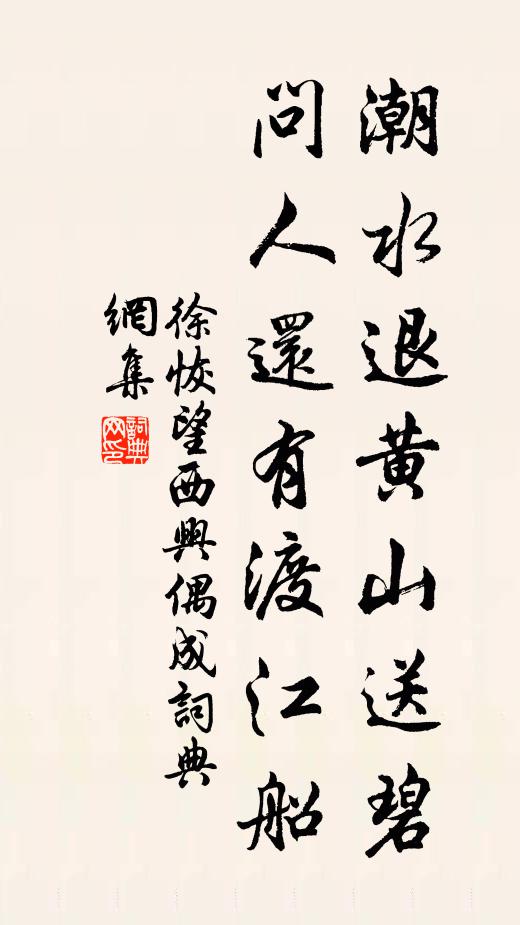 潮水退黄山送碧
問人還有渡江船
徐恢望西興偶成詞典
網集
詞典網印